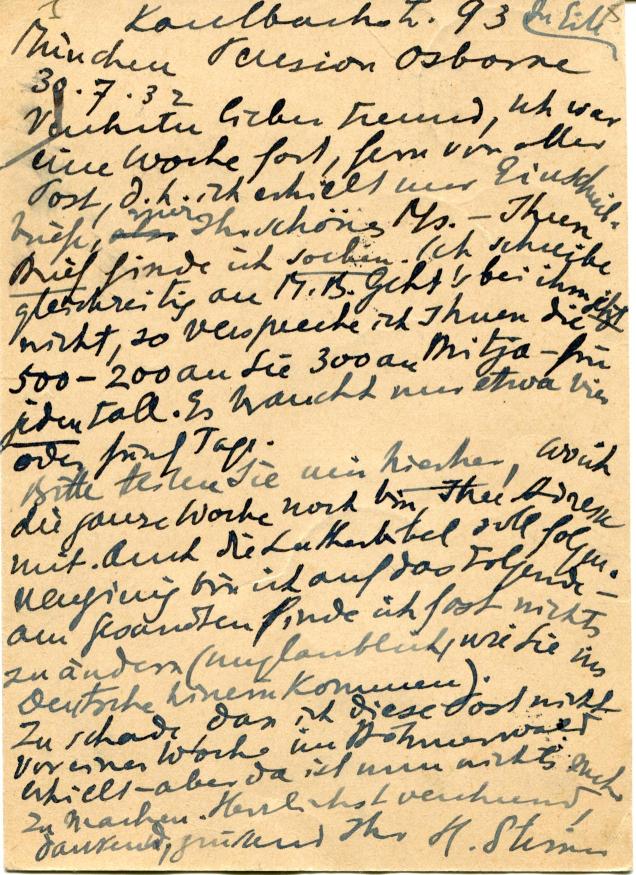 Kaulbachstr. 93 In Eile
München Pension Osborne
30.7.32
Verehrter lieber Freund, ich war
eine Woche fort, fern von aller
Post, d.h. ich erhielt nur Einschreib-
briefe, nur Ihr schönes Ms. – Ihren
Brief finde ich soeben. Ich schreibe
gleichzeitig an M.B. Geht's bei ihm jetzt
nicht, so verspreche ich Ihnen die
500 – 200 an Sie 300 an Mitja – für
jeden Fall. Es braucht nur etwa vier
oder fünf Tage.
Bitte teilen Sie mir hierher, wo ich
die ganze Woche noch bin, Ihre Adresse
mit. Auch die Lutherbibel soll folgen.
Neugierig bin ich auf das Folgende –
am Gesandten finde ich fast nichts
zu ändern (unglaublich, wie Sie ins
Deutsche hineinkommen).
Zu schade, dass ich diese Post nicht
vor einer Woche im Böhmerwald
erhielt – aber da ist nun nichts mehr
zu machen. Herzlichst verehrend,
dankend, grüssend Ihr H.